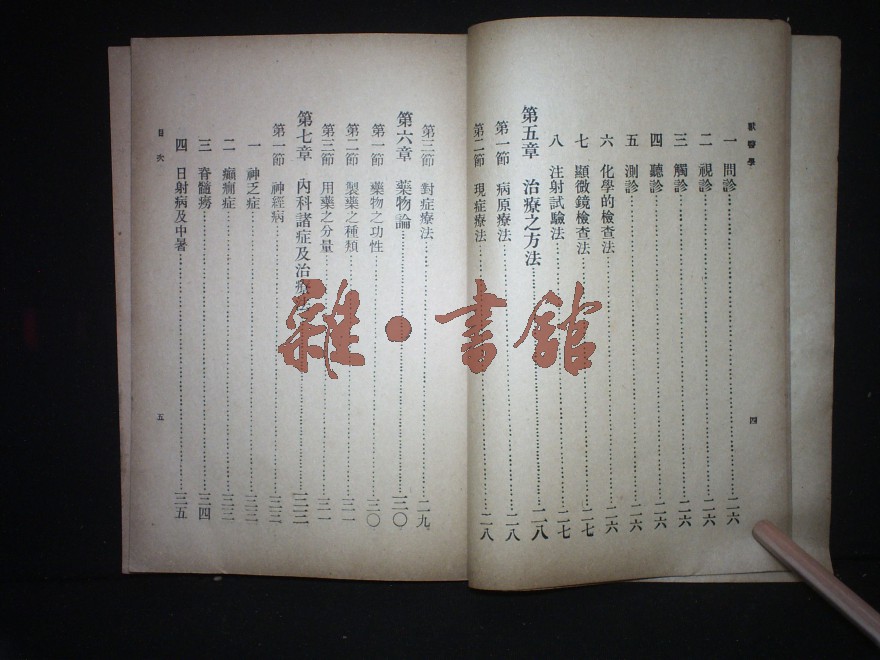 獸醫學
一 問診 二六
二 視診 二六
三 觸診 二六
四 聽診 二六
五 測診 二六
六 化學的檢查法 二六
七 顯微鏡檢查法 二七
八 注射試驗法 二七
第五章 治療之方法 二八
第一節 病原療法 二八
第二節 現症療法 二八
四
第三節 對症療法 二九
第六章 藥物論 三〇
第一節 藥物之功性 三〇
第二節 製藥之種類 三一
第三節 用藥之分量 三一
第七章 內科諸症及治療法 三三
第一節 神經病 三三
一 神乏症 三三
二 癲癇症 三三
三 脊髓癆 三四
四 日射病及中暑 三五
目次
五
雜·書館